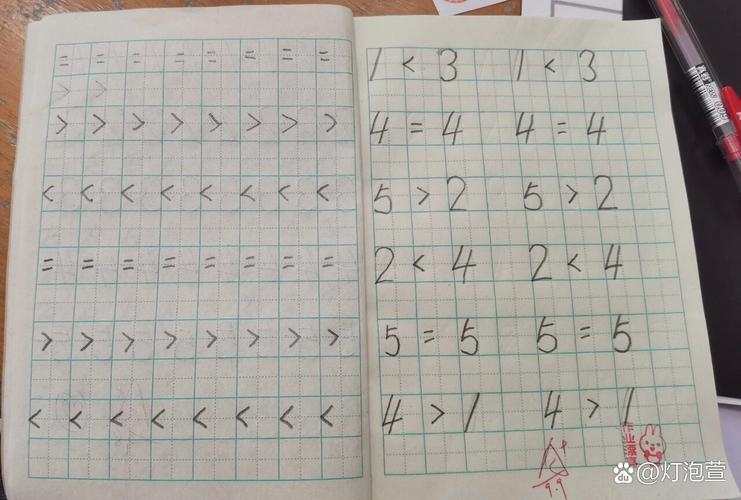 = = = = = = = =
> >
> > > > > > > >
< < < < < < < <
= = = = = = = =
> > > > > > > >
< < < < < < < <
1 < 3 1 < 3
4 = 4 4 = 4
5 > 2 5 > 2
2 < 4 2 < 4
5 = 5 5 = 5
4 > 1 4 > 1
9.9
Bai du @灯泡萱